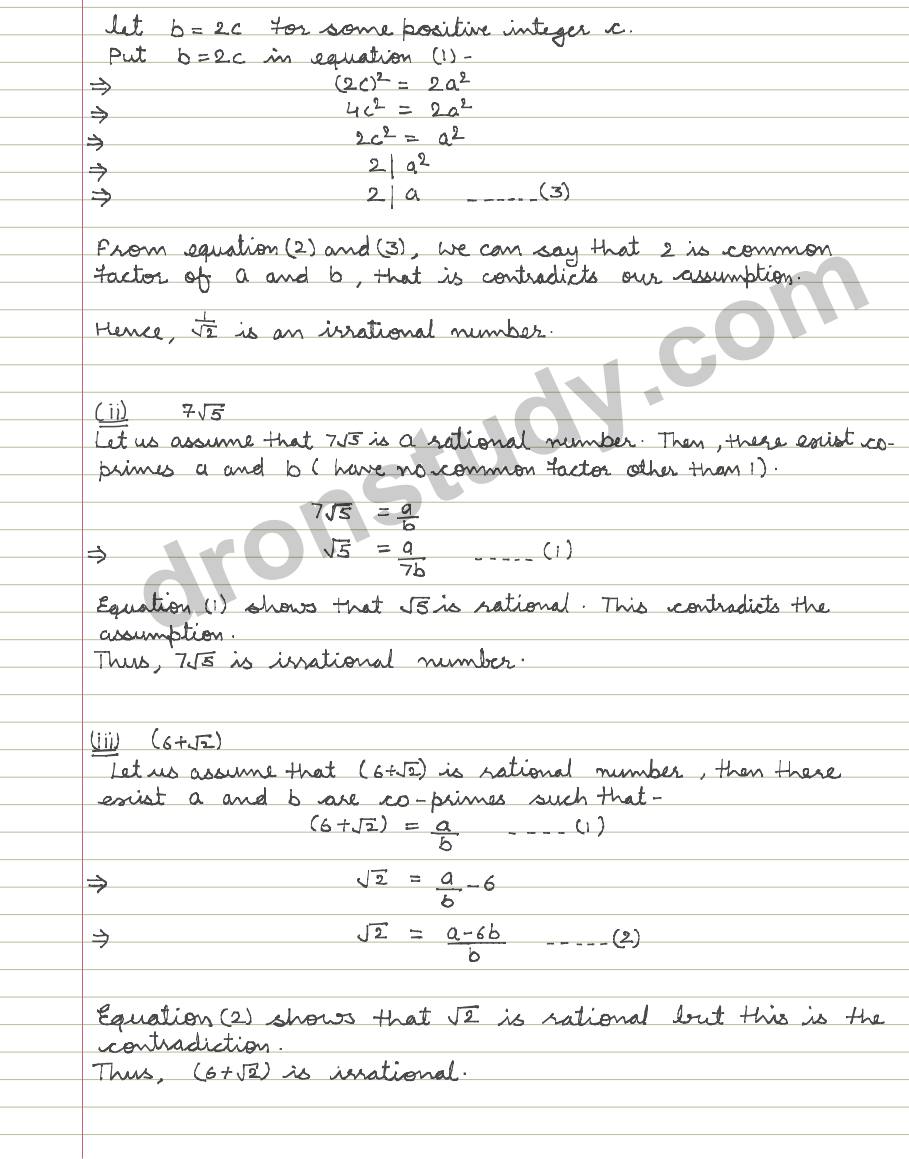 let b = 2c for some positive integer c.
Put b = 2c in equation (1) -
⇒ (2c)² = 2a²
⇒ 4c² = 2a²
⇒ 2c² = a²
⇒ 2 | a²
⇒ 2 | a ------(3)
From equation (2) and (3), we can say that 2 is common
factor of a and b, that is contradicts our assumption.
Hence, 1/√2 is an irrational number.
(ii) 7√5
Let us assume that 7√5 is a rational number. Then, there exist co-
primes a and b (have no common factor other than 1).
7√5 = a/b
⇒ √5 = a/7b -----(1)
Equation (1) shows that √5 is rational. This contradicts the
assumption.
Thus, 7√5 is irrational number.
(iii) (6+√2)
Let us assume that (6+√2) is rational number, then there
exist a and b are co-primes such that -
(6+√2) = a/b ----(1)
⇒ √2 = a/b - 6
⇒ √2 = a-6b/b -----(2)
Equation (2) shows that √2 is rational but this is the
contradiction.
Thus, (6+√2) is irrational.
dronstudy.com